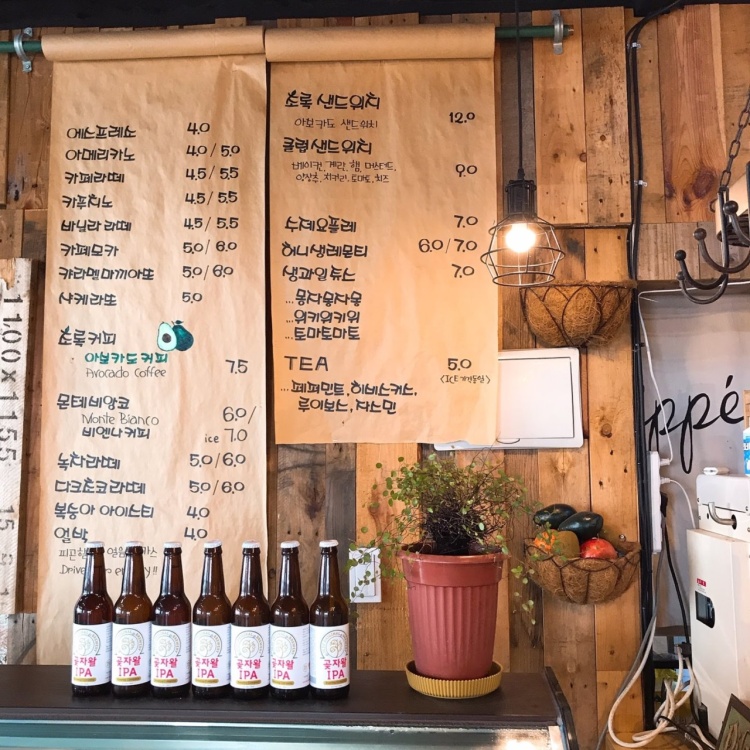 에스프레쏘 4.0
아메리카노 4.0 / 5.0
카페라떼 4.5 / 5.5
카푸치노 4.5 / 5.5
바닐라 라떼 4.5 / 5.5
카페모카 5.0 / 6.0
캬라멜 마끼아또 5.0 / 6.0
사케라또 5.0
초록커피
아보카도 커피 7.5
Avocado Coffee
몬테비앙코 6.0 /
Monte Bianco
비엔나커피 ice 7.0
녹차라떼 5.0 / 6.0
다크초코라떼 5.0 / 6.0
복숭아 아이스티 4.0
얼박 4.0
초록 샌드위치 12.0
아보카도 샌드위치
클럽샌드위치 9.0
베이컨, 계란, 햄, 머스타드,
양상추, 치커리, 토마토, 치즈
수제요플레 7.0
허니생레몬티 6.0 / 7.0
생과일 쥬스 7.0
...몽자몽자몽
...위키위키위
...토마토마토
TEA 5.0
<ICE 가격동일>
...페퍼민트, 히비스커스,
루이보스, 자스민
1100 x 1155
ppé
곶자왈
IPA
곶자왈
IPA
곶자왈
IPA
곶자왈
IPA
곶자왈
IPA
곶자왈
IPA
곶자왈
IPA